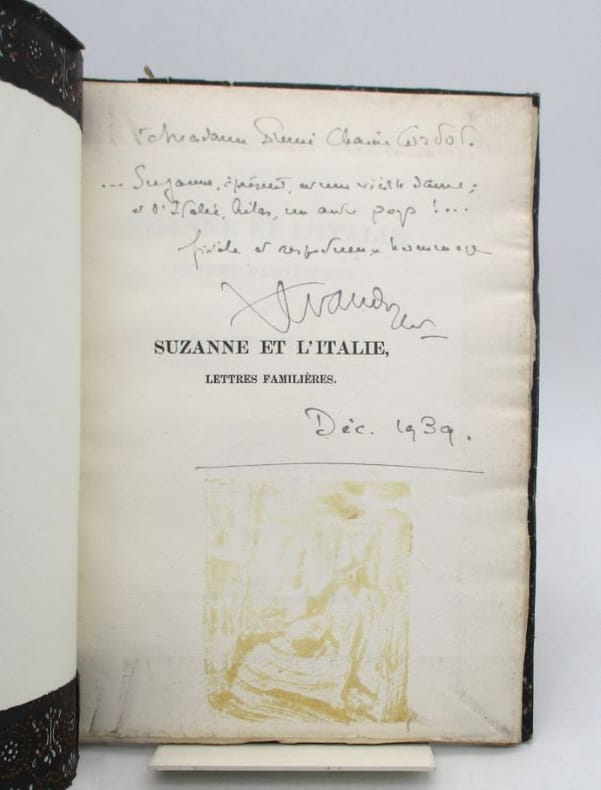 à Madame Chaine
... Suzanne, à présent, est une vieille dame ;
et l'Italie, hélas, un autre pays !...
fidèle et respectueux hommage
SUZANNE ET L'ITALIE,
LETTRES FAMILIÈRES.
Déc. 1939.